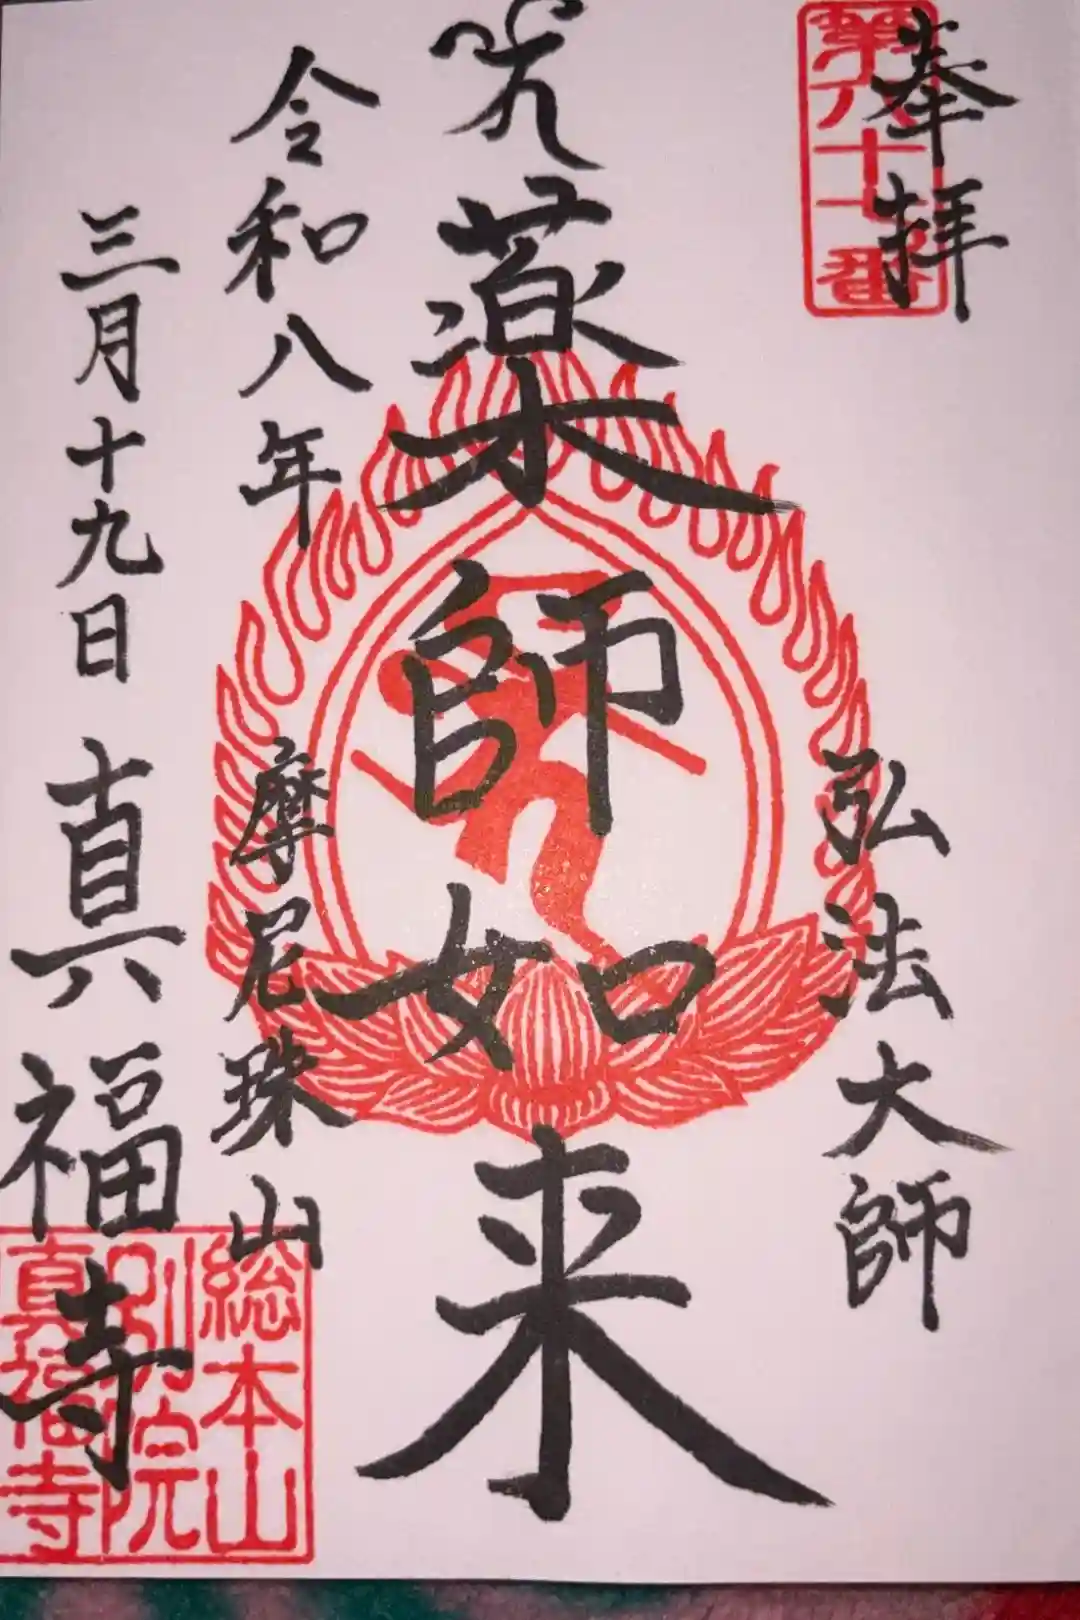 奉拝
第八十七番
弘法大師
薬師如来
令和八年
三月十九日
摩尼珠山
真福寺
総本山
別院
真福寺